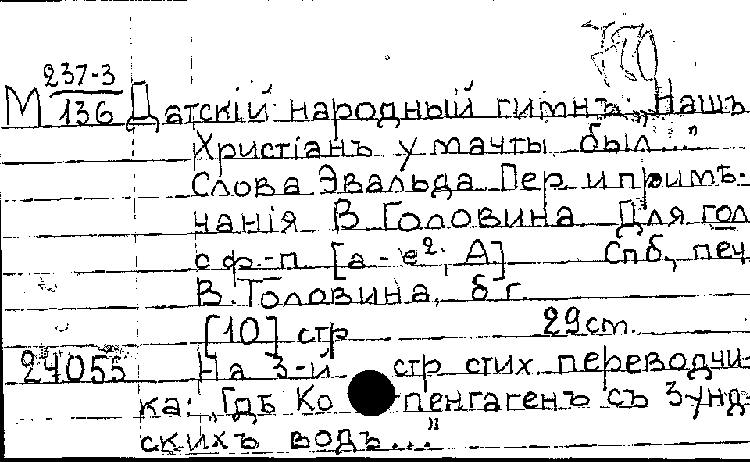 М 237-3/136 Датскій народный гимнъ „Нашъ
Христіанъ у мачты был..."
Слова Эвальда Пер и примѣ-
чанія В Головина Для гол
с ф.-п [а - е². А] Спб., печ
В. Головина, б г.
[10] стр 29 cm.
24055 На 3-й стр стих переводчи-
ка: „Гдѣ Копенгагенъ съ Зунд-
скихъ водъ..."